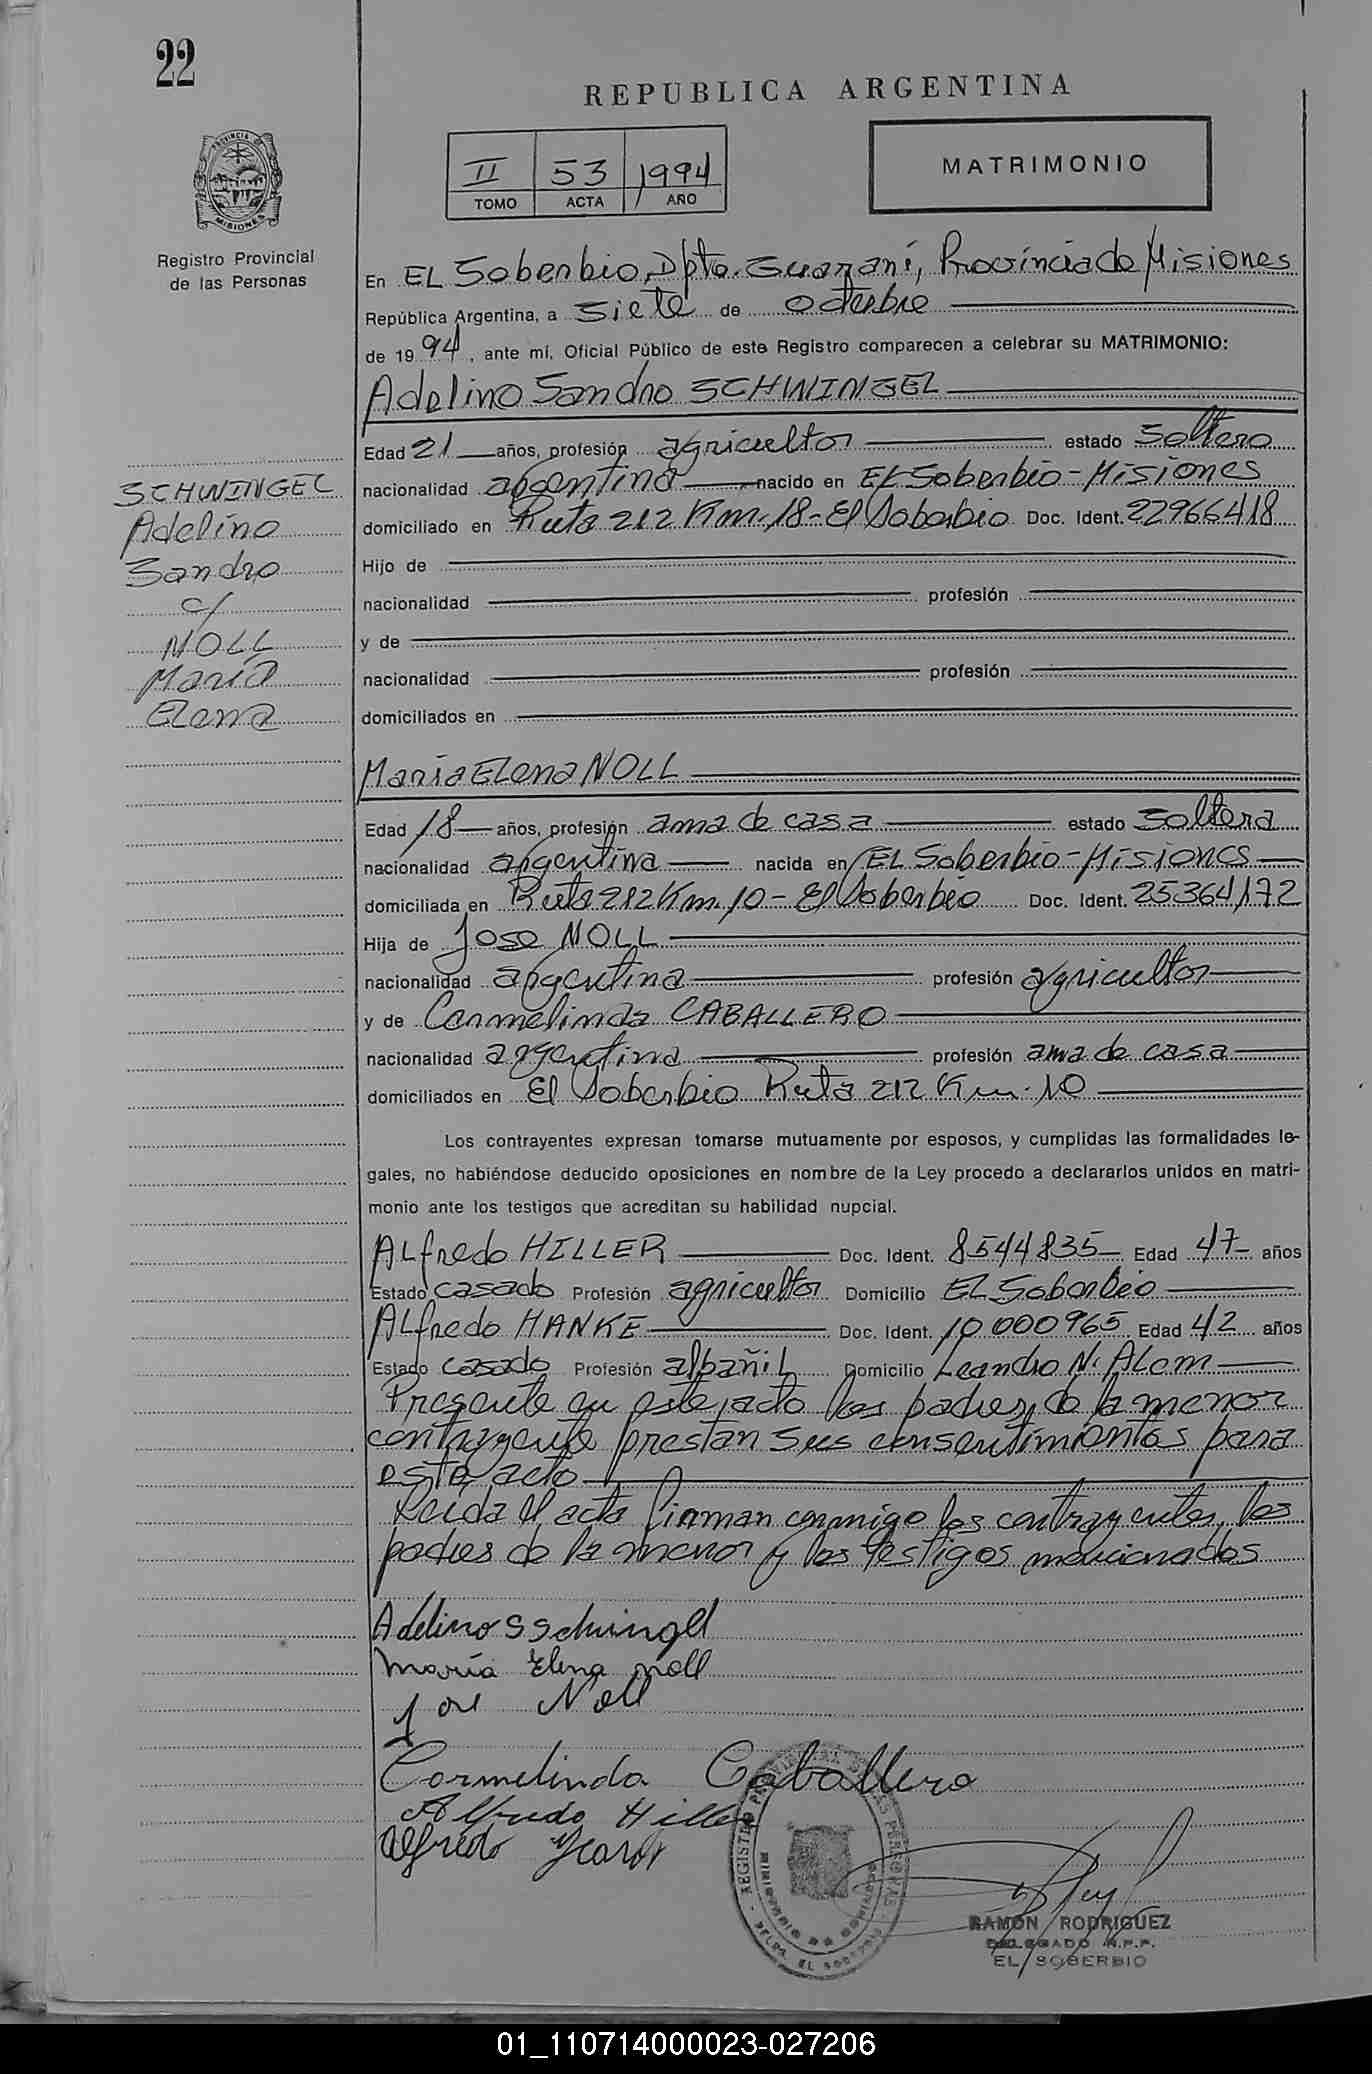 22
REPUBLICA ARGENTINA
II 53 1994
TOMO ACTA AÑO
MATRIMONIO
PROVINCIA DE MISIONES
Registro Provincial
de las Personas
En EL Soberbio, Dpto. Guaraní, Provincia de Misiones
República Argentina, a siete de octubre
de 1994, ante mí, Oficial Público de este Registro comparecen a celebrar su MATRIMONIO:
Adelino Sandro SCHWINGEL
Edad 21 años, profesión agricultor estado soltero
nacionalidad argentina nacido en EL Soberbio - Misiones
domiciliado en Ruta 212 Km. 18 - El Soberbio Doc. Ident. 22966418
Hijo de
nacionalidad profesión
y de
nacionalidad profesión
domiciliados en
SCHWINGEL
Adelino
Sandro
c/
NOLL
María
Elena
María Elena NOLL
Edad 18 años, profesión ama de casa estado soltera
nacionalidad argentina nacida en EL Soberbio - Misiones
domiciliada en Ruta 212 Km. 10 - El Soberbio Doc. Ident. 25364172
Hija de Jose NOLL
nacionalidad argentina profesión agricultor
y de Carmelinda CABALLERO
nacionalidad argentina profesión ama de casa
domiciliados en El Soberbio Ruta 212 Km. 10
Los contrayentes expresan tomarse mutuamente por esposos, y cumplidas las formalidades le-
gales, no habiéndose deducido oposiciones en nombre de la Ley procedo a declararlos unidos en matri-
monio ante los testigos que acreditan su habilidad nupcial.
ALfredo HILLER Doc. Ident. 8544835 Edad 47 años
Estado casado Profesión agricultor Domicilio EL Soberbio
ALfredo HANKE Doc. Ident. 10000965 Edad 42 años
Estado casado Profesión albañil Domicilio Leandro N. ALem
Presente en este acto los padres de la menor
contrayente prestan sus consentimientos para
este acto
Leida el acta firman conmigo los contrayentes, los
padres de la menor y los testigos mencionados
Adelino S Schwingel
María Elena Noll
Jose Noll
Carmelinda Caballero
Alfredo Hiller
Alfredo
REGISTRO PROVINCIAL DE LAS PERSONAS
DELEG. EL SOBERBIO
RAMON RODRIGUEZ
DELEGADO R.P.P.
EL SOBERBIO
01_110714000023-027206